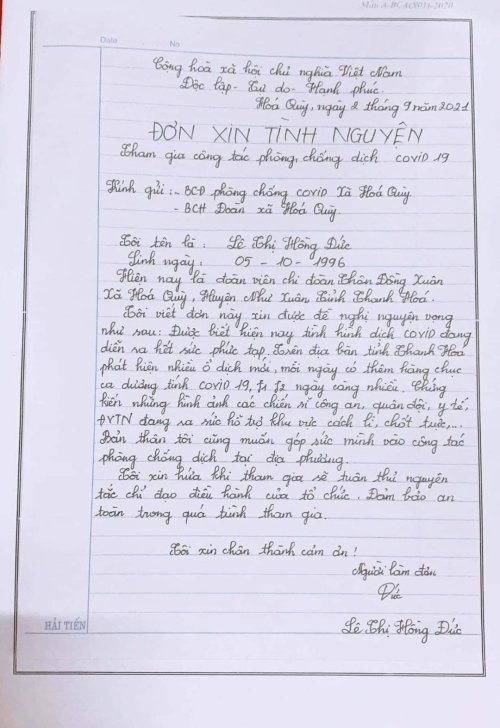 Mẫu A-BCA(X01)-2020
Date No
Cộng hoà xã hội chủ nghĩa Việt Nam
Độc lập - Tự do - Hạnh phúc.
Hoá Quỳ, ngày 2 tháng 9 năm 2021
ĐƠN XIN TÌNH NGUYỆN
Tham gia công tác phòng, chống dịch COVID 19
Kính gửi : - BCĐ phòng chống COVID Xã Hoá Quỳ
- BCH Đoàn xã Hoá Quỳ.
Tôi tên là : Lê Thị Hồng Đức
Sinh ngày : 05 - 10 - 1996
Hiện nay là đoàn viên chi đoàn Thôn Đồng Xuân
Xã Hoá Quỳ, Huyện Như Xuân Tỉnh Thanh Hoá.
Tôi viết đơn này xin được đề nghị nguyện vọng
như sau : Được biết hiện nay tình hình dịch COVID đang
diễn ra hết sức phức tạp. Trên địa bàn tỉnh Thanh Hoá
phát hiện nhiều ổ dịch mới, mỗi ngày có thêm hàng chục
ca dương tính COVID 19, f1 f2 ngày càng nhiều. Chứng
kiến những hình ảnh các chiến sĩ công an, quân đội, y tế,
ĐVTN đang ra sức hỗ trợ khu vực cách li, chốt trực,...
Bản thân tôi cũng muốn góp sức mình vào công tác
phòng chống dịch tại địa phương.
Tôi xin hứa khi tham gia sẽ tuân thủ nguyên
tắc chỉ đạo điều hành của tổ chức. Đảm bảo an
toàn trong quá trình tham gia.
Tôi xin chân thành cảm ơn !
Người làm đơn
Đức
HẢI TIẾN
Lê Thị Hồng Đức